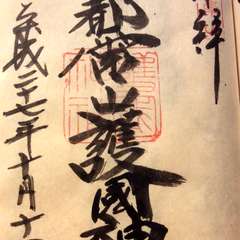 拝
都霊山護國神
平成二十七年十月十